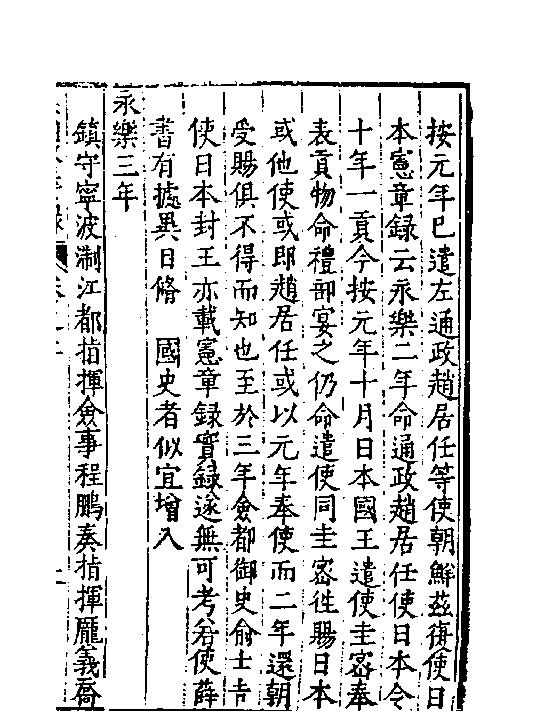 按元年已遣左通政趙居任等使朝鮮茲復使日
本憲章録云永樂二年命通政趙居任使日本令
十年一貢今按元年十月日本國王遣使圭密奉
表貢物命禮部宴之仍命遣使同圭密徃賜日本
或他使或即趙居任或以元年奉使而二年還朝
受賜俱不得而知也至於三年僉都御史俞士吉
使日本封王亦載憲章録實録遂無可考若使薛
書有據異日脩　國史者似宜增入
永樂三年
鎮守寧波淛江都指揮僉事程鵬奏指揮龐義喬